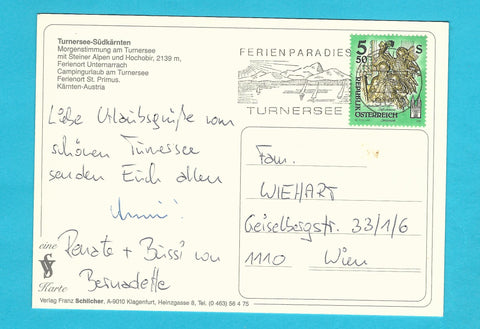 Turnersee-Südkärnten
Morgenstimmung am Turnersee
mit Steiner Alpen und Hochobir, 2139 m,
Ferienort Unternarrach
Campingurlaub am Turnersee
Ferienort St. Primus.
Kärnten-Austria
FERIENPARADIES
TURNERSEE
5 50 S
REPUBLIK
ÖSTERREICH
Liebe Urlaubsgrüße vom
schönen Turnersee
senden Euch allen
Renate + Bussi von
Bernadette
Fam.
WIEHART
Geiselbergstr. 33/1/6
1110 Wien
eine
Karte
Verlag Franz Schilcher, A-9010 Klagenfurt, Heinzgasse 8, Tel. (0 463) 56 4 75